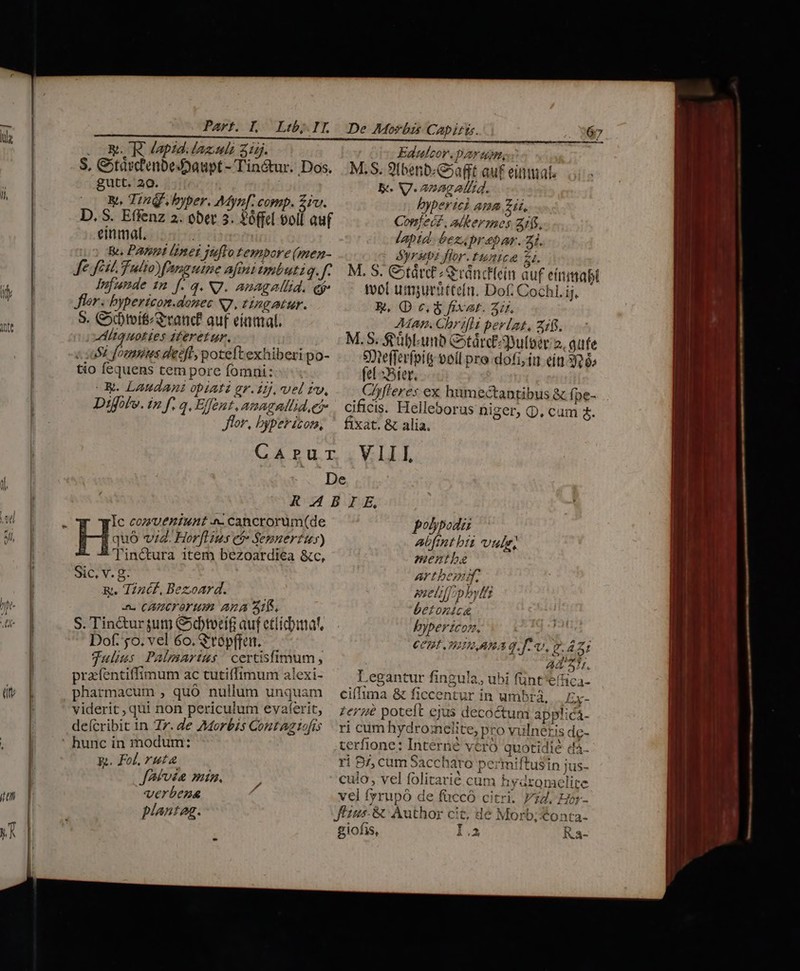 Part. I. Lib. II.
℞. ℞ lapid. lazuli ʒiij.
S. Stärckende-Haupt-Tinctur. Dos.
gutt. 20.
℞. Tinct. hyper. Myns. comp. ℥iv.
D. S. Essenz 2. oder 3. Löffel voll auf
einmal.
℞. Panni linei justo tempore (men-
se feil. Julio) sanguine
Infunde in s. q.
flor. hypericon. donec
S. Schweiß-Tranck auf einmal.
Aliquoties iteretur.
Si somnus deest, potest exhiberi po-
tio sequens tempore somni:
℞. Laudani opiati gr. iij. vel iv,
Dissolv. in s. q. Essent. anagallid. &
flor. hypericon,
De Morbis Capitis. 67
Edulcor. parum.
M. S. Abend-Safft auf einmal.
℞. anagallid.
hyperici ana ℥ii,
Confect. alkermes ʒiß.
lapid. bez. præpar. ʒi.
Syrupi flor. tunicæ ℥i.
M. S. Stärck-Träncklein auf einmahl
wol umzurütteln. Dos. Cochl. ij.
℞. fixat. ʒii.
Man. Christi perlat. ʒiß.
M. S. Kühl- und Stärck-Pulver 2. gute
Messerspitz voll pro dosi, in ein Nö-
sel Bier.
Clysteres ex humectantibus & spe-
cificis. Helleborus niger, cum
fixat. & alia.
CAPUT VIII.
De
RABIE.
HIc conveniunt cancrorum (de
quô vid. Horstius & Sennertus)
Tinctura item bezoardica &c,
Sic, v. g.
℞. Tinct. Bezoard.
cancrorum ana ʒiß.
S. Tinctur zum Schweiß auf etlichmal,
Dos. 50. vel 60. Tröpffen.
Julius Palmarius certissimum,
præsentissimum ac tutissimum alexi-
pharmacum, quô nullum unquam
viderit, qui non periculum evaserit,
describit in Tr. de Morbis Contagiosis
hunc in modum:
℞. Fol. rutæ
salviæ min.
verbenæ
plantag.
polypodii
absinthii vulg.
menthæ
arthemis.
melissophylli
betonicæ
hypericon.
cent. min. ana q. s. v. g. à ʒi
ad ʒii.
Legantur singula, ubi sunt effica-
cissima & siccentur in umbrâ, Ex-
ternè potest ejus decoctum applica-
ri cum hydromelite, pro vulneris de-
tersione: Internè verò quotidiè da-
ri cum Saccharo permistus in jus-
culo, vel solitariè cum hydromelite
vel syrupô de succô citri. Vid. Hor-
stius & Author cit. de Morb. conta-
giosis,
I 2
Ra-